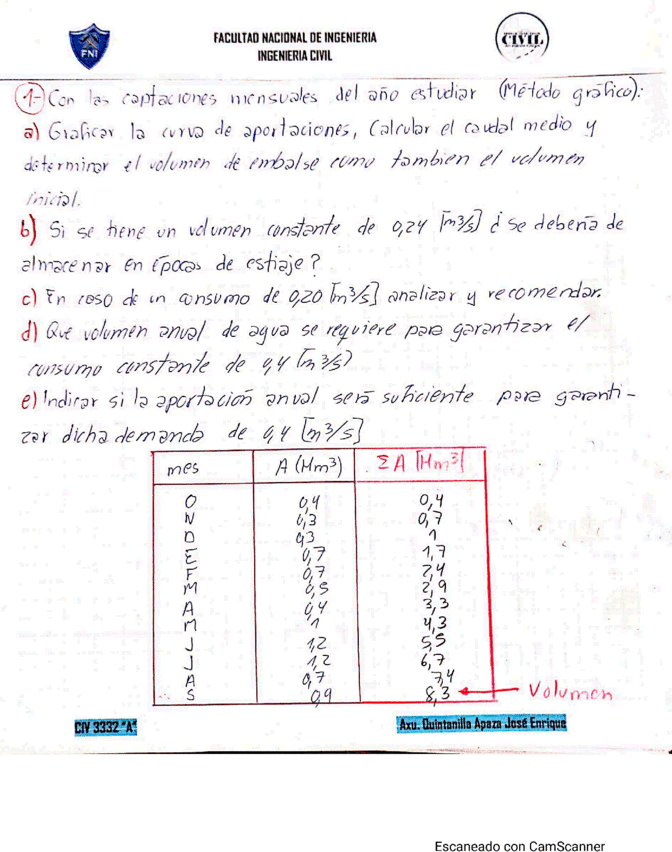 FNI
FACULTAD NACIONAL DE INGENIERIA
INGENIERIA CIVIL
CIVIL
1- Con las captaciones mensuales del año estudiar (Método gráfico):
a) Graficar la curva de aportaciones, Calcular el caudal medio y
determinar el volumen de embalse como tambien el volumen
inicial.
b) Si se tiene un volumen constante de 0,24 [m3/s] ¿ se debería de
almacenar en épocas de estiaje?
c) En caso de un consumo de 0,20 [m3/s] analizar y recomendar.
d) Que volumen anual de agua se requiere para garantizar el
consumo constante de 0,4 [m3/s]
e) Indicar si la aportación anual será suficiente para garanti-
zar dicha demanda de 0,4 [m3/s]
mes A (Hm3) ΣA [Hm3]
O 0,4 0,4
N 0,3 0,7
D 0,3 1
E 0,7 1,7
F 0,7 2,4
M 0,5 2,9
A 0,4 3,3
M 1 4,3
J 1,2 5,5
J 1,2 6,7
A 0,7 7,4
S 0,9 8,3 Volumen
CIV 3332 "A"
Axu. Quintanilla Apaza José Enrique
Escaneado con CamScanner